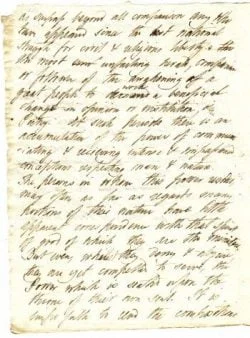 as surpass beyond all comparison any who
have appeared since the last national
struggle for civil & religious liberty
the most unfailing herald, companion
or follower of the awakening of a
great people to work a beneficial
change in opinion or institution, is
Poetry. At such periods there is an
accumulation of the power of commun
icating & receiving intense & impassioned
conceptions respecting man & nature.
The persons in whom this power resides
may often as far as regards many
portions of their nature have little
apparent correspondence with that spirit
of good of which they are the ministers
But even whilst they deny & abjure
they are yet compelled to serve, the
Power which is seated upon the
throne of their own soul. It is
impossible to read the compositions